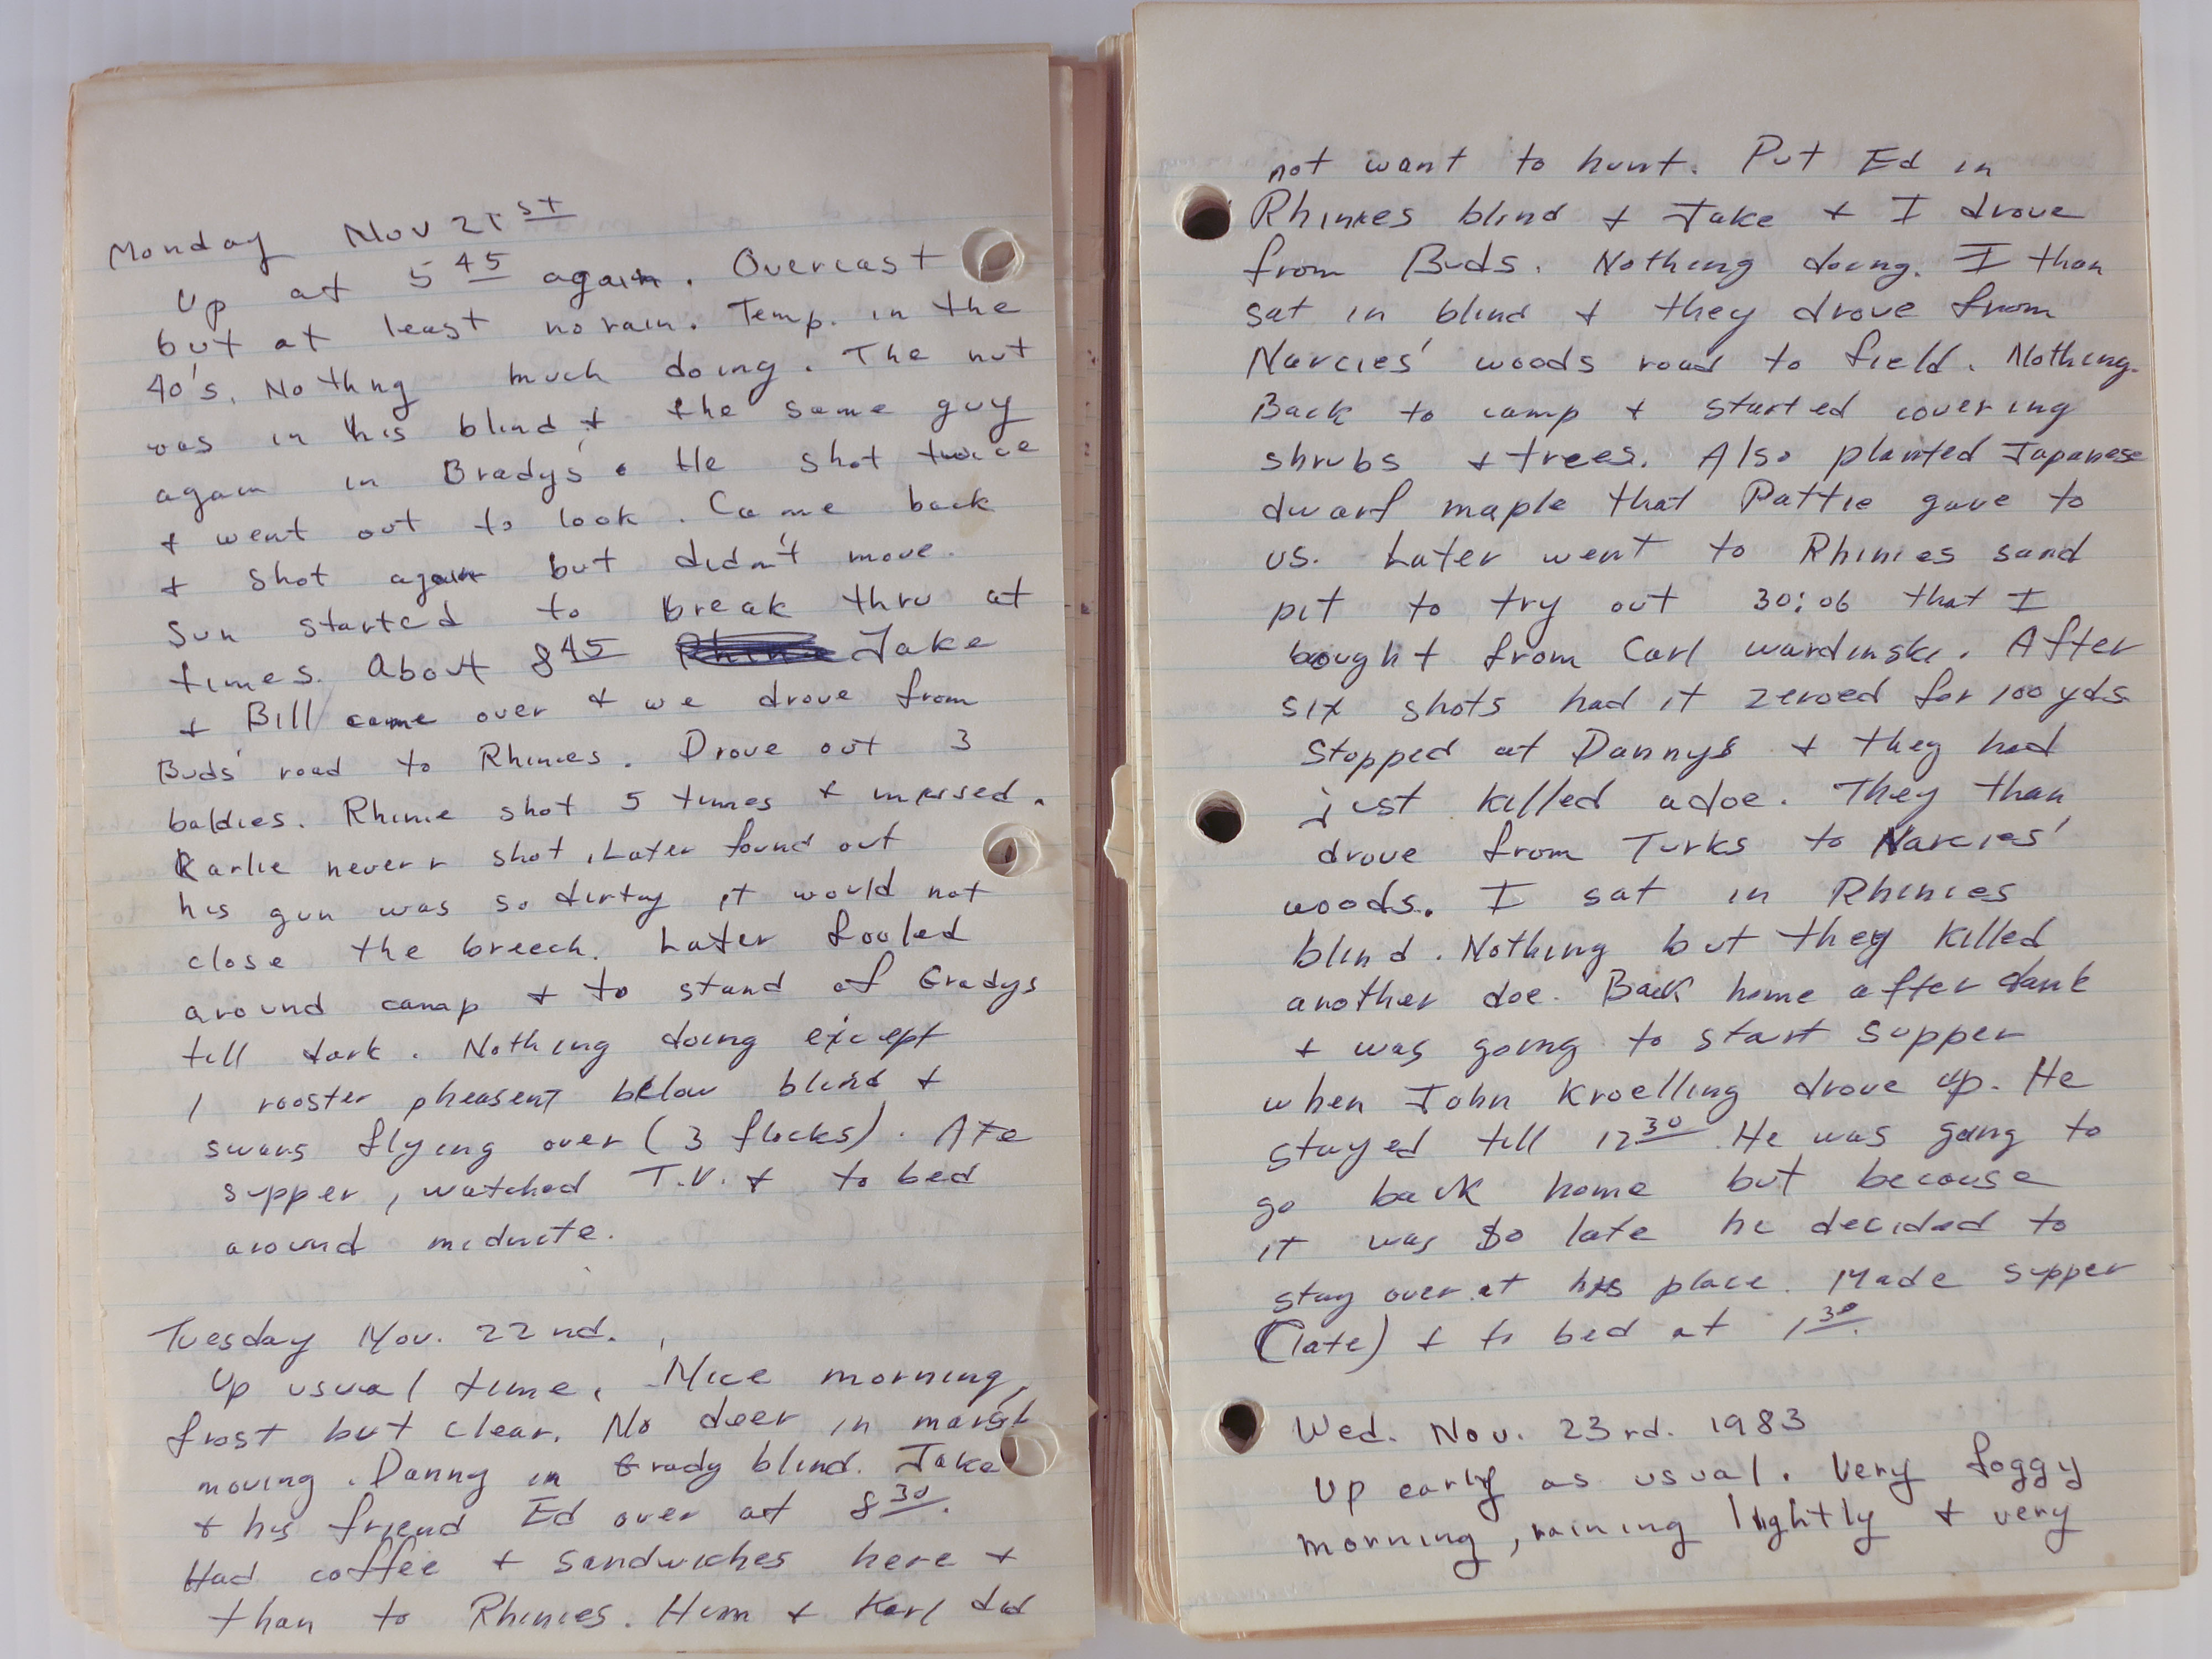 Monday Nov 21st
Up at 5 45 again. Overcast
but at least no rain. Temp. in the
40's. Nothng much doing. The nut
was in his blind & the same guy
again in Bradys. He shot twice
& went out to look. Came back
& shot again but didn't move.
Sun started to break thru at
times. About 8 45 Jake
& Bill came over & we drove from
Buds' road to Rhinies. Drove out 3
baldies. Rhinie shot 5 times & missed.
Karlie never shot. Later found out
his gun was so dirty it would not
close the breech. Later fooled
around camp & to stand of Gradys
till dark. Nothing doing except
1 rooster pheasent below blind &
swans flying over (3 flocks). Ate
supper, watched T.V. & to bed
around midnite.
Tuesday Nov. 22nd.
Up usual time. Nice morning,
frost but clear. No deer in marsh
moving. Danny in Grady blind. Jake
& his friend Ed over at 8 30.
Had coffee & sandwiches here &
than to Rhinies. Him & Karl did
not want to hunt. Put Ed in
Rhinies blind & Jake & I drove
from Buds. Nothing doing. I than
sat in blind & they drove from
Narcies' woods road to field. Nothing.
Back to camp & started covering
shrubs & trees. Also planted Japanese
dwarf maple that Pattie gave to
us. Later went to Rhinies sand
pit to try out 30:06 that I
bought from Carl wardinski. After
six shots had it zeroed for 100 yds.
Stopped at Dannys & they had
just killed a doe. They than
drove from Turks to Narcies'
woods. I sat in Rhinies
blind. Nothing but they killed
another doe. Back home after dark
& was going to start supper
when John Kroelling drove up. He
stayed till 12 30. He was going to
go back home but because
it was so late he decided to
stay over at his place. Made supper
(late) & to bed at 1 30.
Wed. Nov. 23rd. 1983
Up early as usual. Very foggy
morning, raining lightly & very